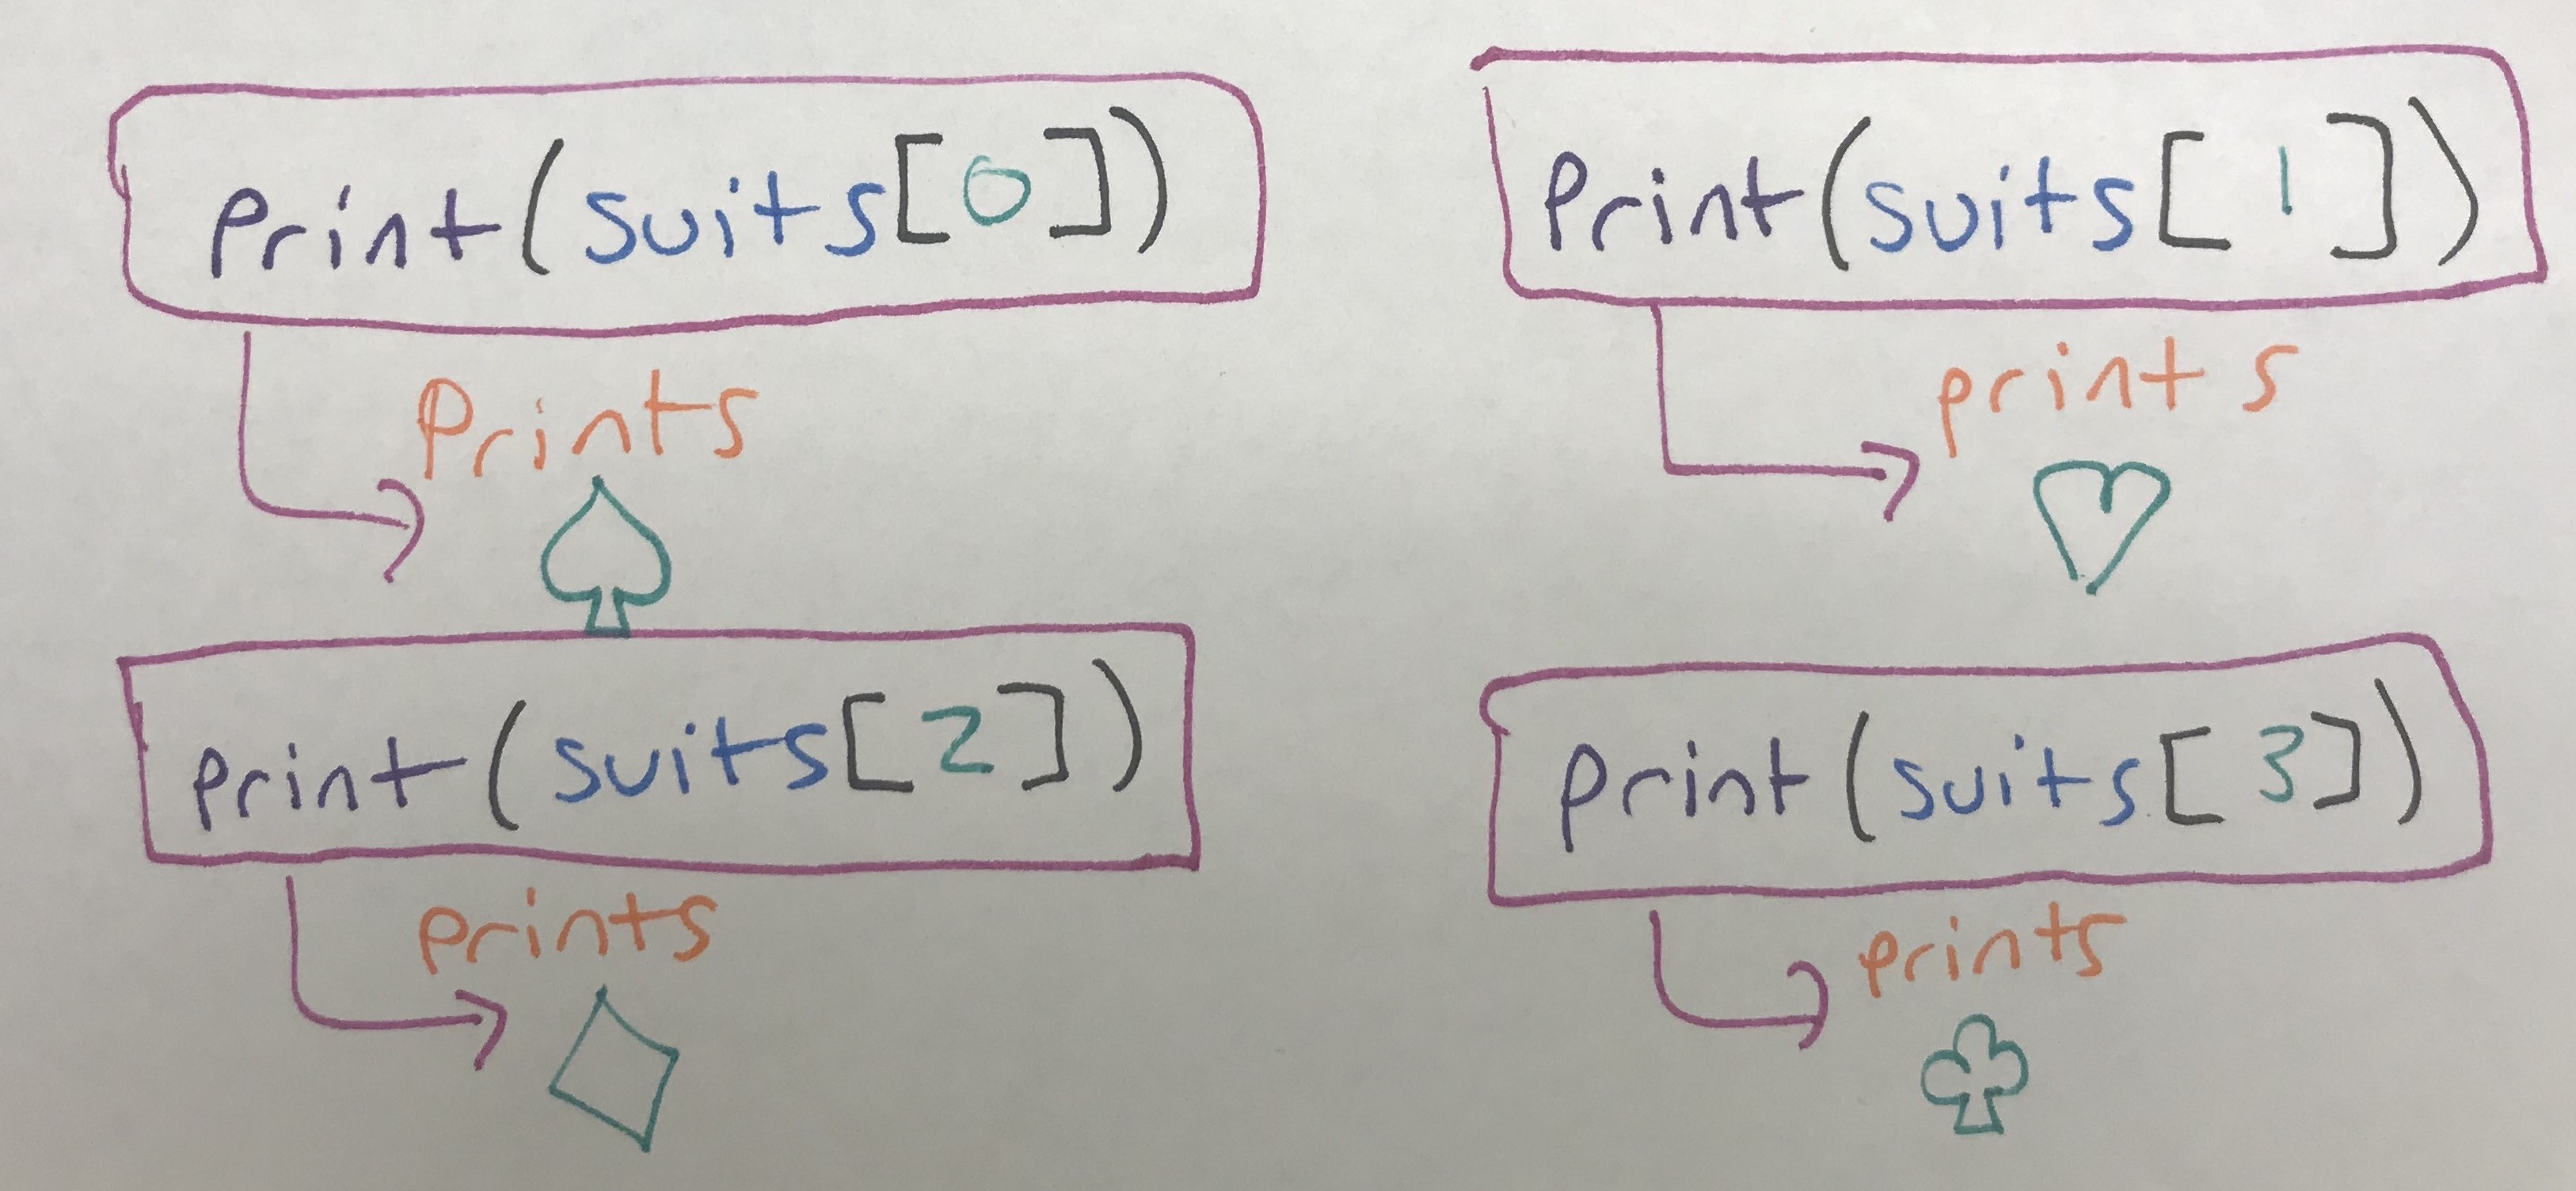 Print(suits[0])
Prints
Print(suits[1])
prints
print(suits[2])
prints
print(suits[3])
prints